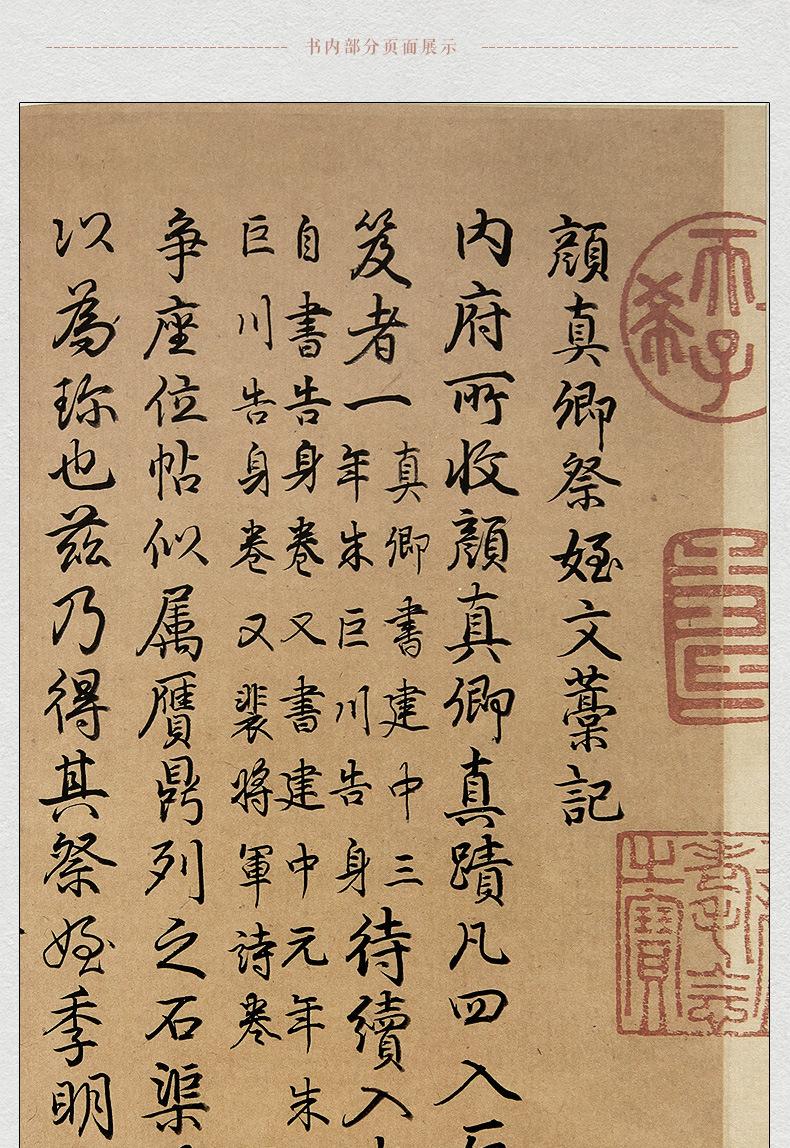 书内部分页面展示
天子
希
壽
耄念
之寶
顔真卿祭姪文藁記
内府所收顔真卿真蹟凡四入
笈者一
真卿書建中三
年朱巨川告身
待續入
自書告身卷又書建中元年朱
巨川告身卷又裴將軍詩卷
争座位帖似属贋鼎列之石渠
以為珎也兹乃得其祭姪季明